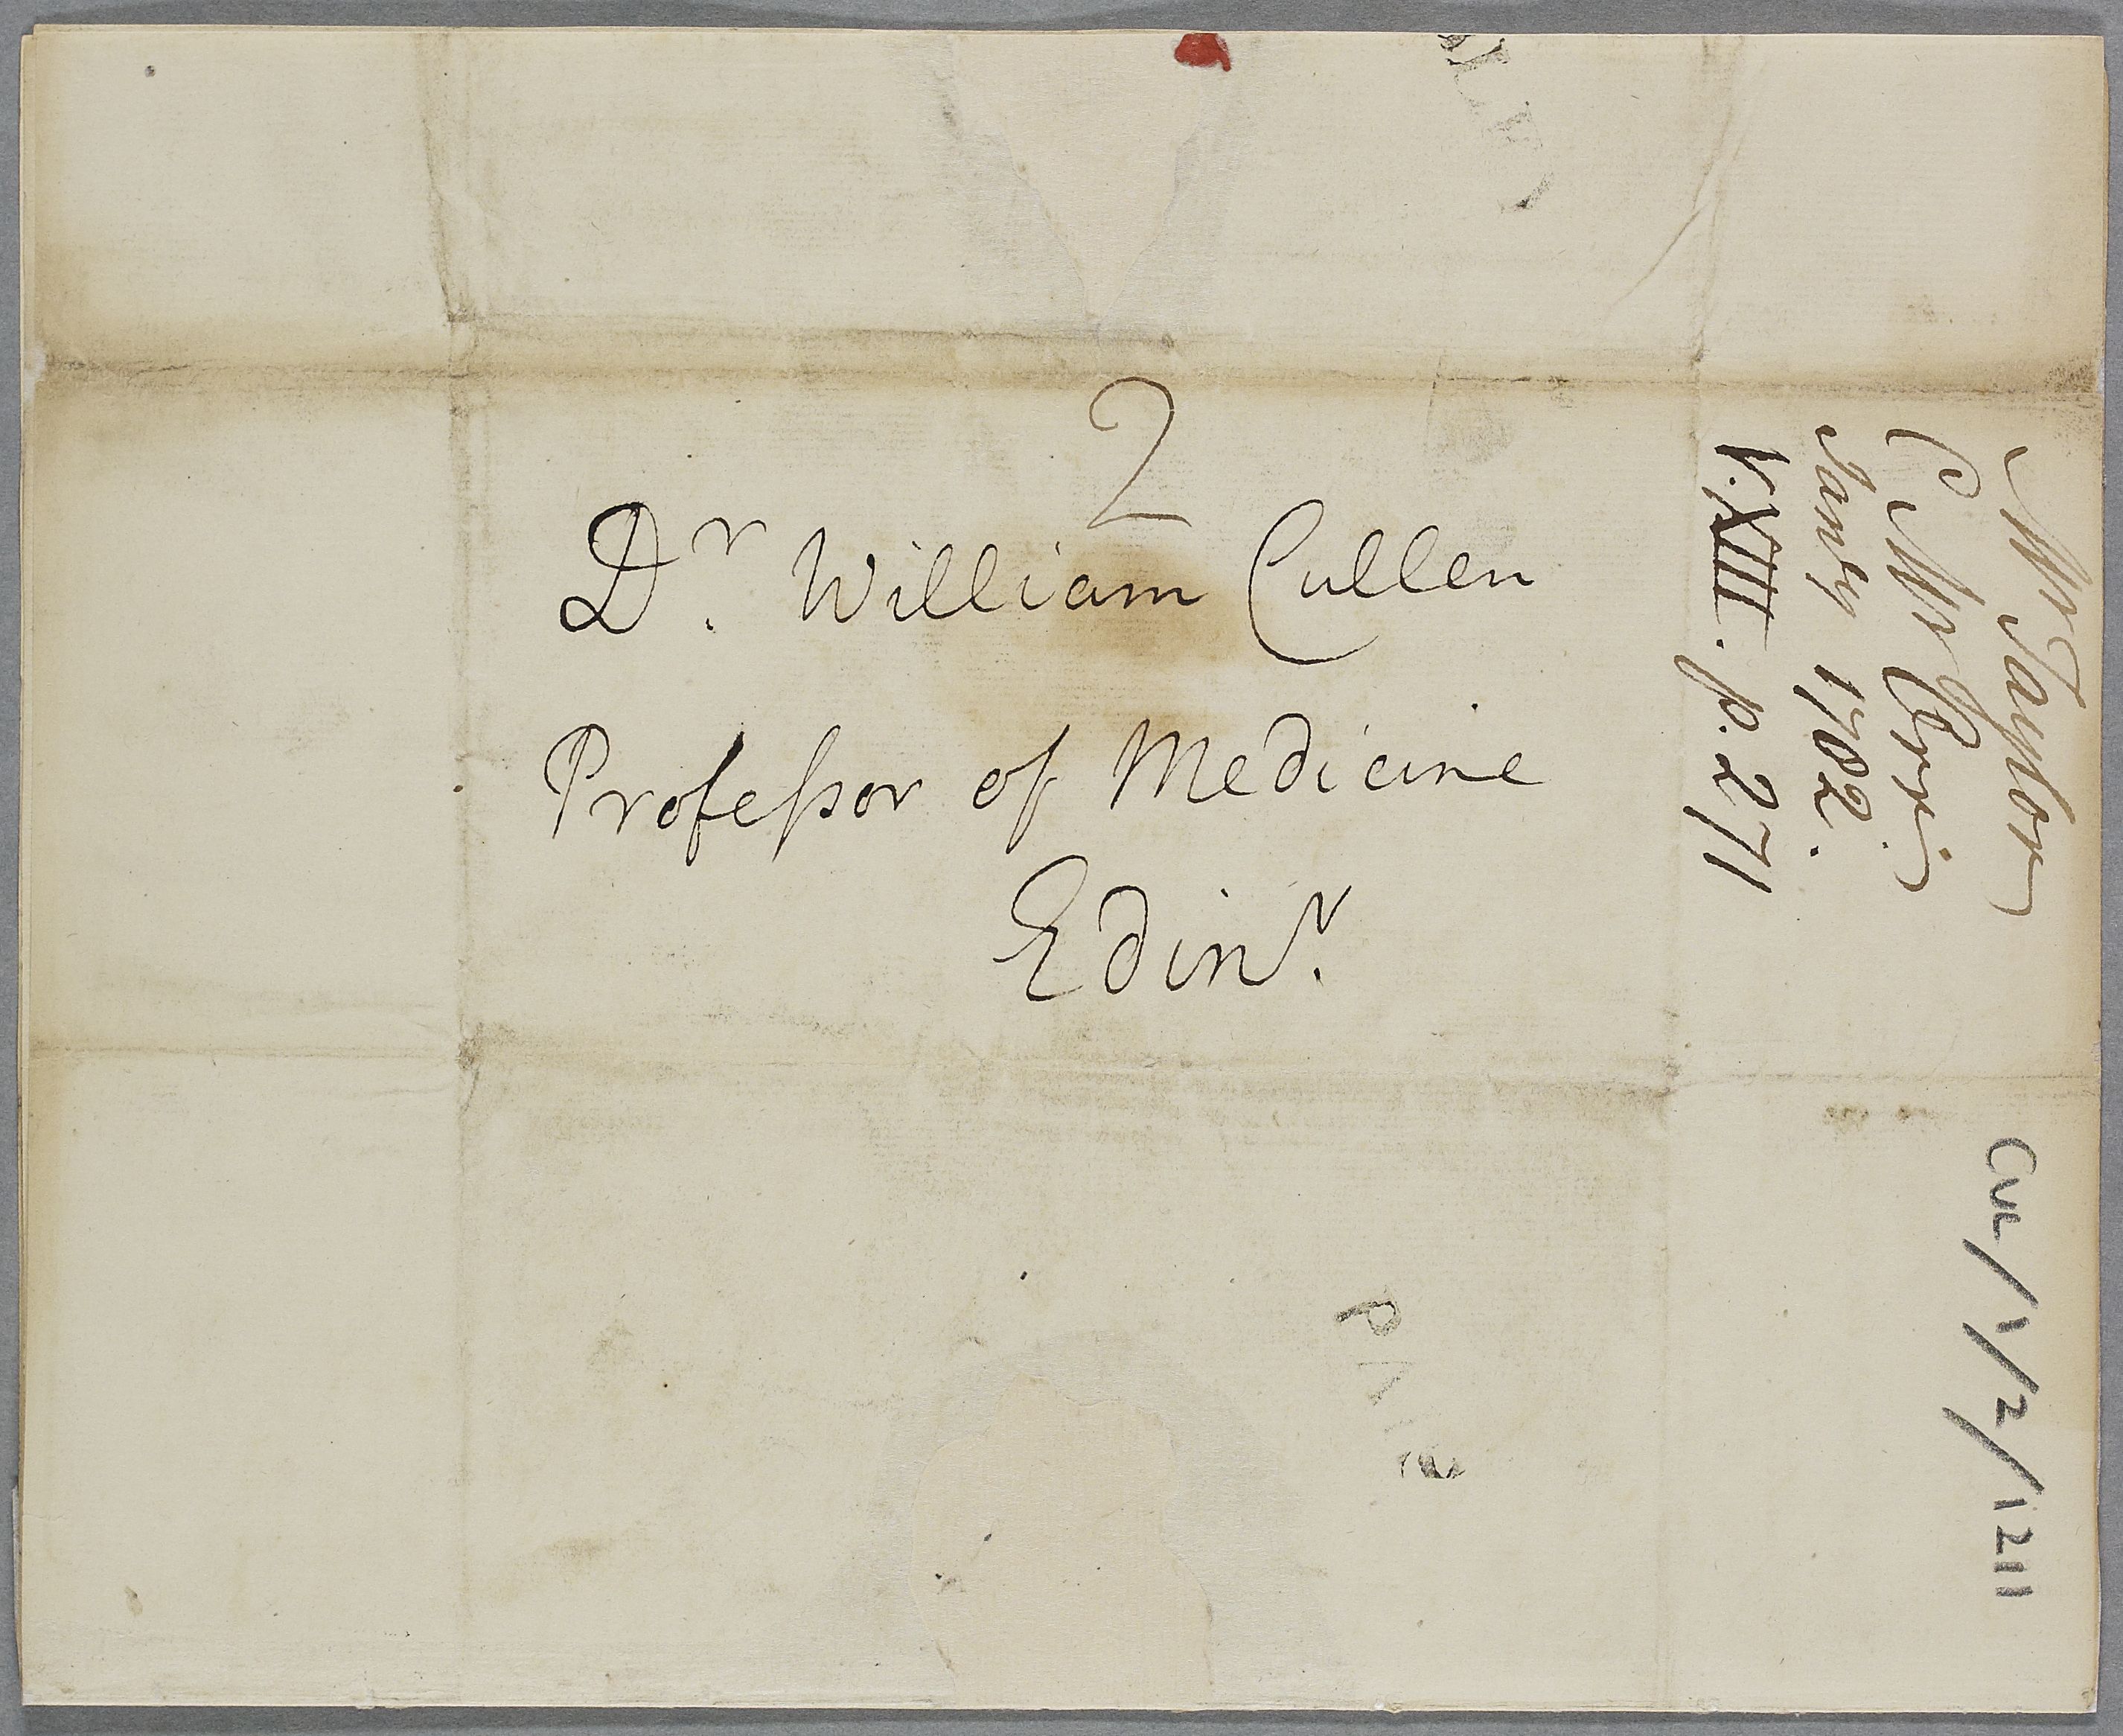 2
Dr. William Cullen
Professor of Medicine
Edinr.
Mr Taylor
C Mr Orr
Janry 1782.
V. XIII. p. 271
CUL/1/2/1211
PAI
SLEY